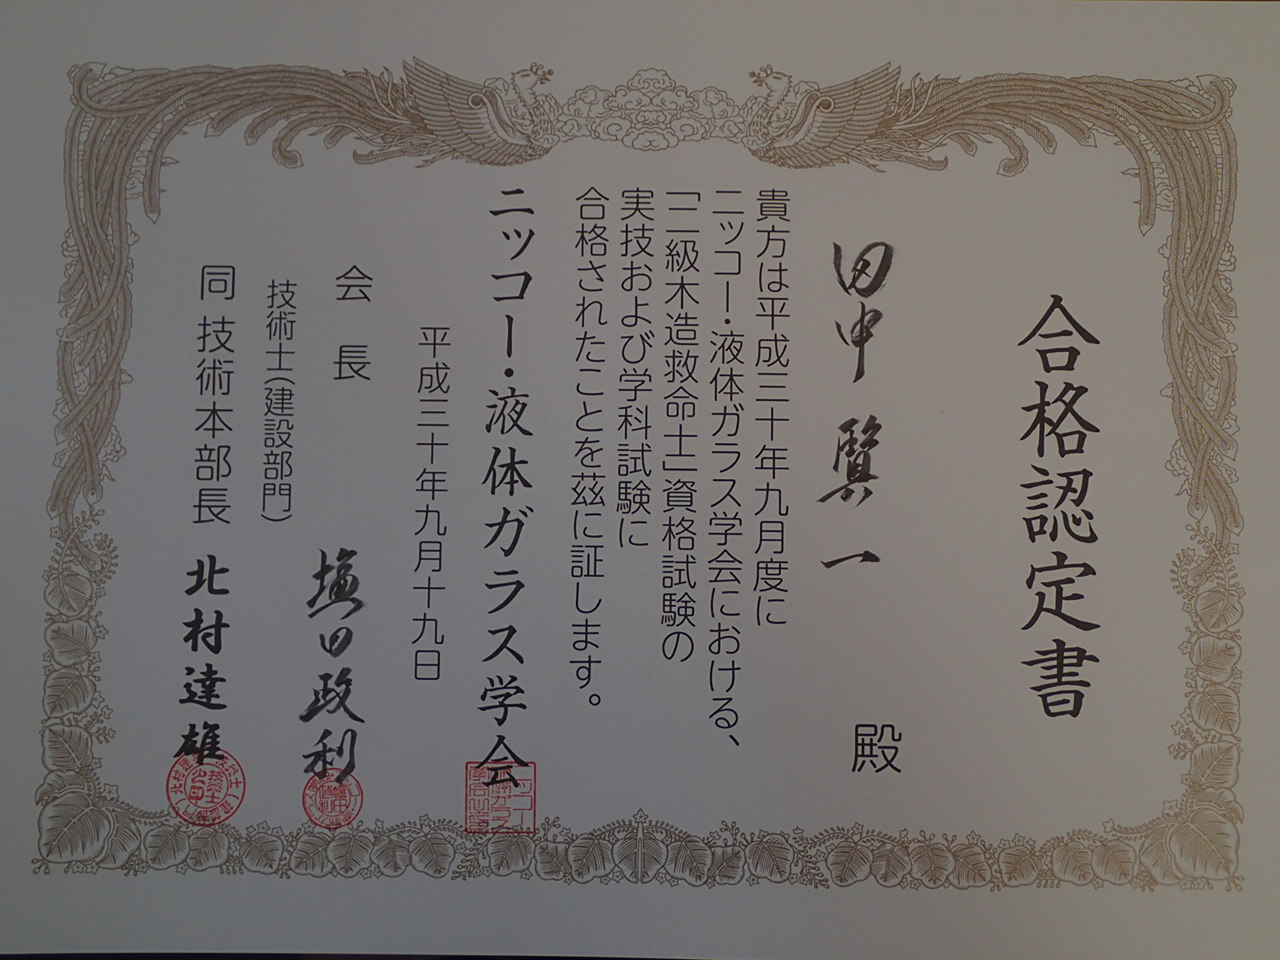 合格認定書
田中賢一 殿
貴方は平成三十年九月度に
ニッコー・液体ガラス学会における、
「二級木造救命士」資格試験の
実技および学科試験に
合格されたことを茲に証します。
平成三十年九月十九日
ニッコー・液体ガラス学会
会長 塩田政利
技術士(建設部門)
同技術本部長 北村達雄